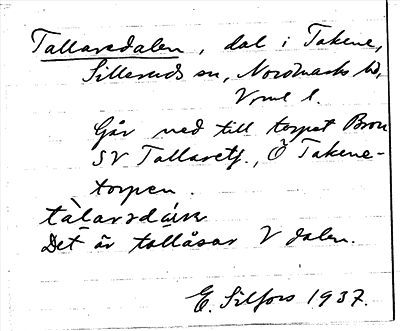 Tallarsdalen, dal i Takene,
Silleruds sn, Nordmarks hd,
Vrml l.
Går ned till torpet Bron
SV Tallaretj., Ö Takene-
torpen.
tàlarsdáɷ
Det är tallåsar V dalen.
E. Silfors 1937.